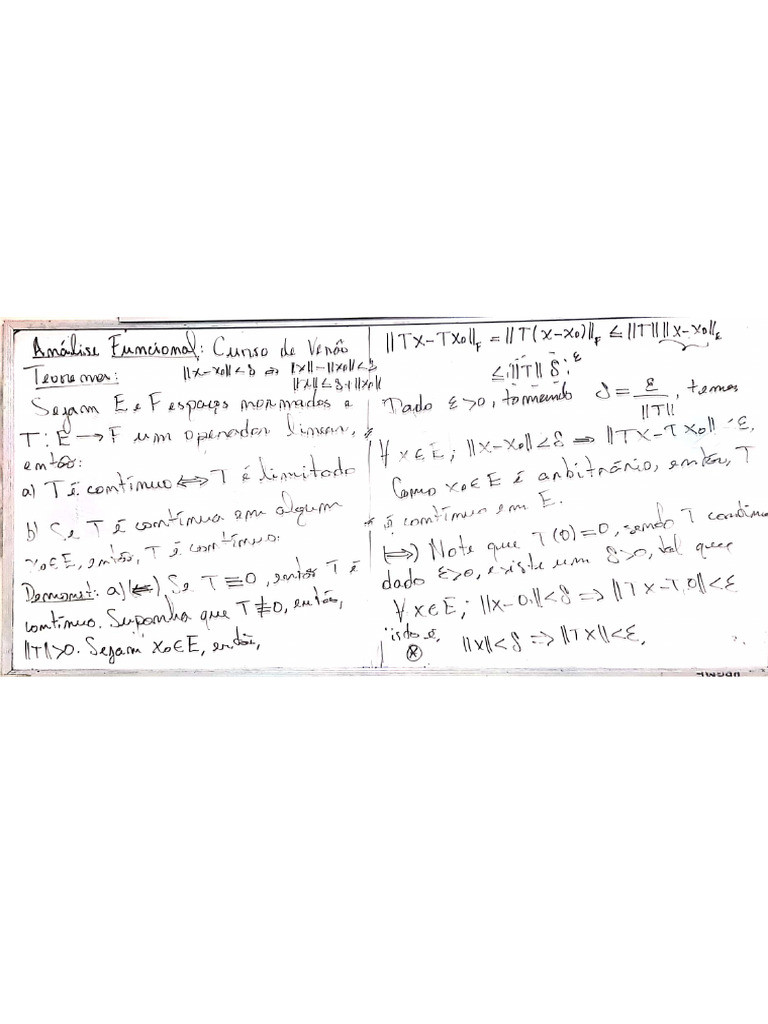 Análise Funcional: Curso de Verão
Teorema: ||x-x₀||<δ ⇒ ||x||-||x₀||<δ
||x||≤δ+||x₀||
Sejam E e F espaços normados e
T: E → F um operador linear,
então:
a) T é contínuo ⇔ T é limitado
b) Se T é contínua em algum
x₀∈E, então, T é contínuo.
Demonst: a) (⇐) Se T≡0, então T é
contínuo. Suponha que T≢0, então,
||T||>0. Sejam x₀∈E, então,
||Tx-Tx₀||_F = ||T(x-x₀)||_F ≤ ||T|| ||x-x₀||_E
≤ ||T|| δ
Dado ε>0, tomando δ = ε/||T||, temos
∀x∈E; ||x-x₀||<δ ⇒ ||Tx-Tx₀||<ε,
Como x₀∈E é arbitrário, então, T
é contínuo em E.
(⇒) Note que T(0)=0, sendo T
dado ε>0, existe um δ>0, tal que
∀x∈E; ||x-0||<δ ⇒ ||Tx-T0||<ε
isto é, ||x||<δ ⇒ ||Tx||<ε.